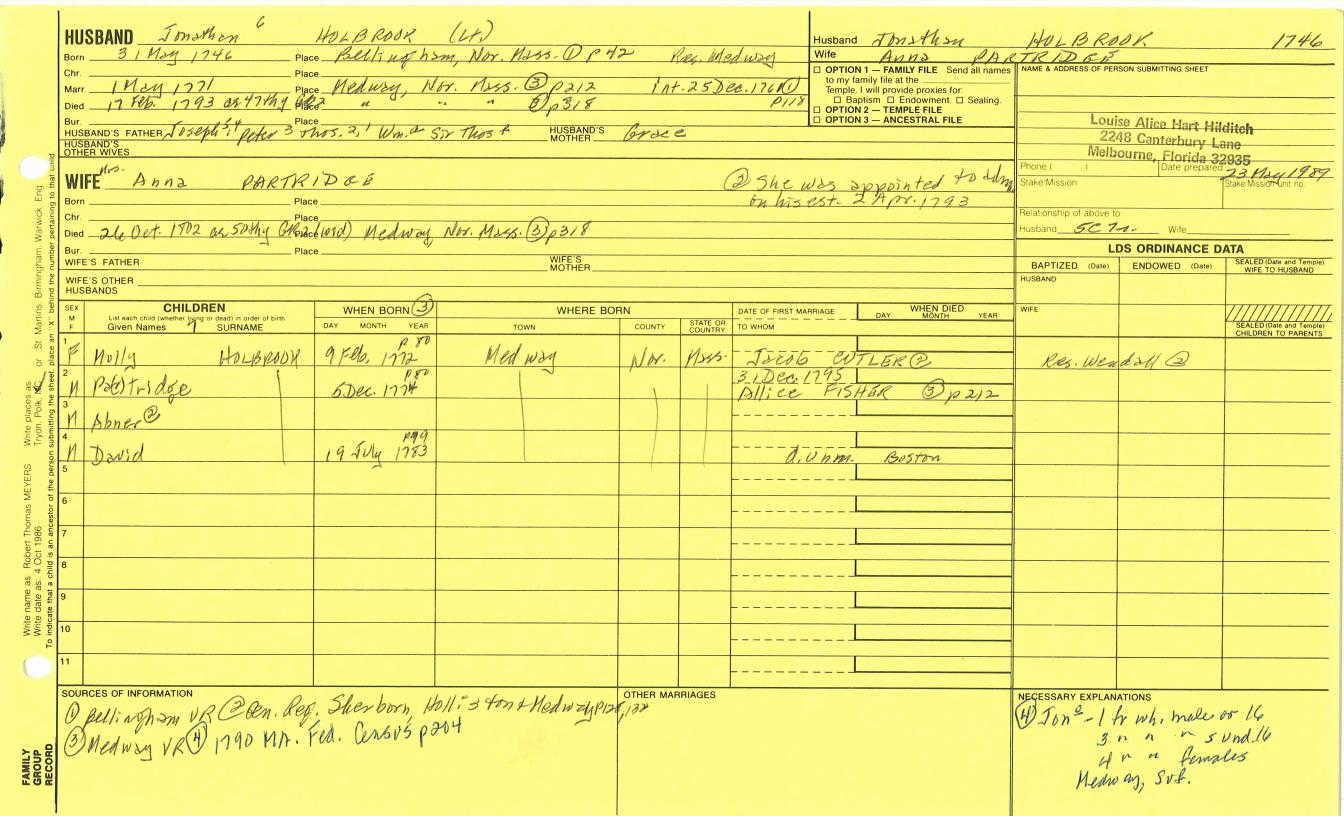 HUSBAND Jonathan 6 HOLBROOK (Lt)
Born 31 May 1746 Place Bellingham, Nor. Mass. ① p 42 Res. Medway
Chr. Place
Marr. 1 May 1771 Place Medway, Nor. Mass. ③ p212 Int. 25 Dec.
Died 17 Feb. 1793 as 47thy Place " " " p318 p118
Bur.
HUSBAND'S FATHER Joseph Peter 3 Thos. 2,1 Wm. Sir Thos HUSBAND'S MOTHER Grace
HUSBAND'S OTHER WIVES
WIFE Mrs. Anna PARTRIDGE ② She was appointed to adm.
on his est. 2 Apr. 1793
Born Place
Chr. Place
Died 26 Oct. 1802 as 50thy (GR2 wid) Medway Nor. Mass. ③ p318
Bur. Place
WIFE'S FATHER WIFE'S MOTHER
WIFE'S OTHER HUSBANDS
Husband Jonathan HOLBROOK 1746
Wife Anna PARTRIDGE
☐ OPTION 1 — FAMILY FILE Send all names
to my family file at the
Temple. I will provide proxies for:
☐ Baptism ☐ Endowment ☐ Sealing.
☐ OPTION 2 — TEMPLE FILE
☐ OPTION 3 — ANCESTRAL FILE
NAME & ADDRESS OF PERSON SUBMITTING SHEET
Louise Alice Hart Hilditch
2248 Canterbury Lane
Melbourne, Florida 32935
Phone ( ) Date prepared 23 May 1989
Stake/Mission Stake/Mission unit no.
Relationship of above to
Husband Wife
LDS ORDINANCE DATA
BAPTIZED (Date) ENDOWED (Date) SEALED (Date and Temple) WIFE TO HUSBAND
HUSBAND
WIFE
SEALED (Date and Temple) CHILDREN TO PARENTS
SEX M F CHILDREN WHEN BORN ③ WHERE BORN DATE OF FIRST MARRIAGE WHEN DIED
List each child (whether living or dead) in order of birth
Given Names 7 SURNAME DAY MONTH YEAR TOWN COUNTY STATE OR COUNTRY TO WHOM DAY MONTH YEAR
1 p 80
F Molly HOLBROOK 9 Feb. 1772 Medway Nor. Mass. Jacob CUTLER ② Res. Wendall ②
2 p80 31 Dec. 1795
M Pa(r)tridge 5 Dec. 1774 Allice FISHER ③ p 212
3
M Abner ②
4
M David 19 July 1783 d. unm. Boston
5
6
7
8
9
10
11
SOURCES OF INFORMATION
① Bellingham VR ② Gen. Reg. Sherborn, Holliston & Medway
③ Medway VR ④ 1790 MA. Fed. Census p204
OTHER MARRIAGES
NECESSARY EXPLANATIONS
④ Jona - 1 fr wh. male or 16
3 " " " s und. 16
4 " " females
Medway, Suf.
Write name as: Robert Thomas MEYERS Write places as: Tryon, Polk, or St. Martins, Birmingham, Warwick, Eng.
Write date as: 4 Oct 1986
To indicate that a child is an ancestor of the person submitting the sheet, place an "X" behind the number pertaining to that child
FAMILY GROUP RECORD